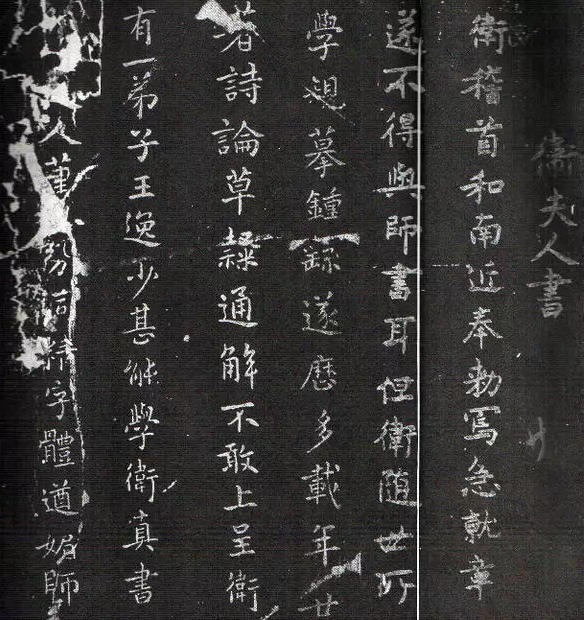 衛夫人書
衛稽首和南近奉勅寫急就章
遂不得與師書耳但衛随世所
學規摹鍾繇遂歷多載年廿
著詩論草隸通解不敢上呈衛
有一弟子王逸少甚能學衛真書
人筆勢洞精字體遒媚師